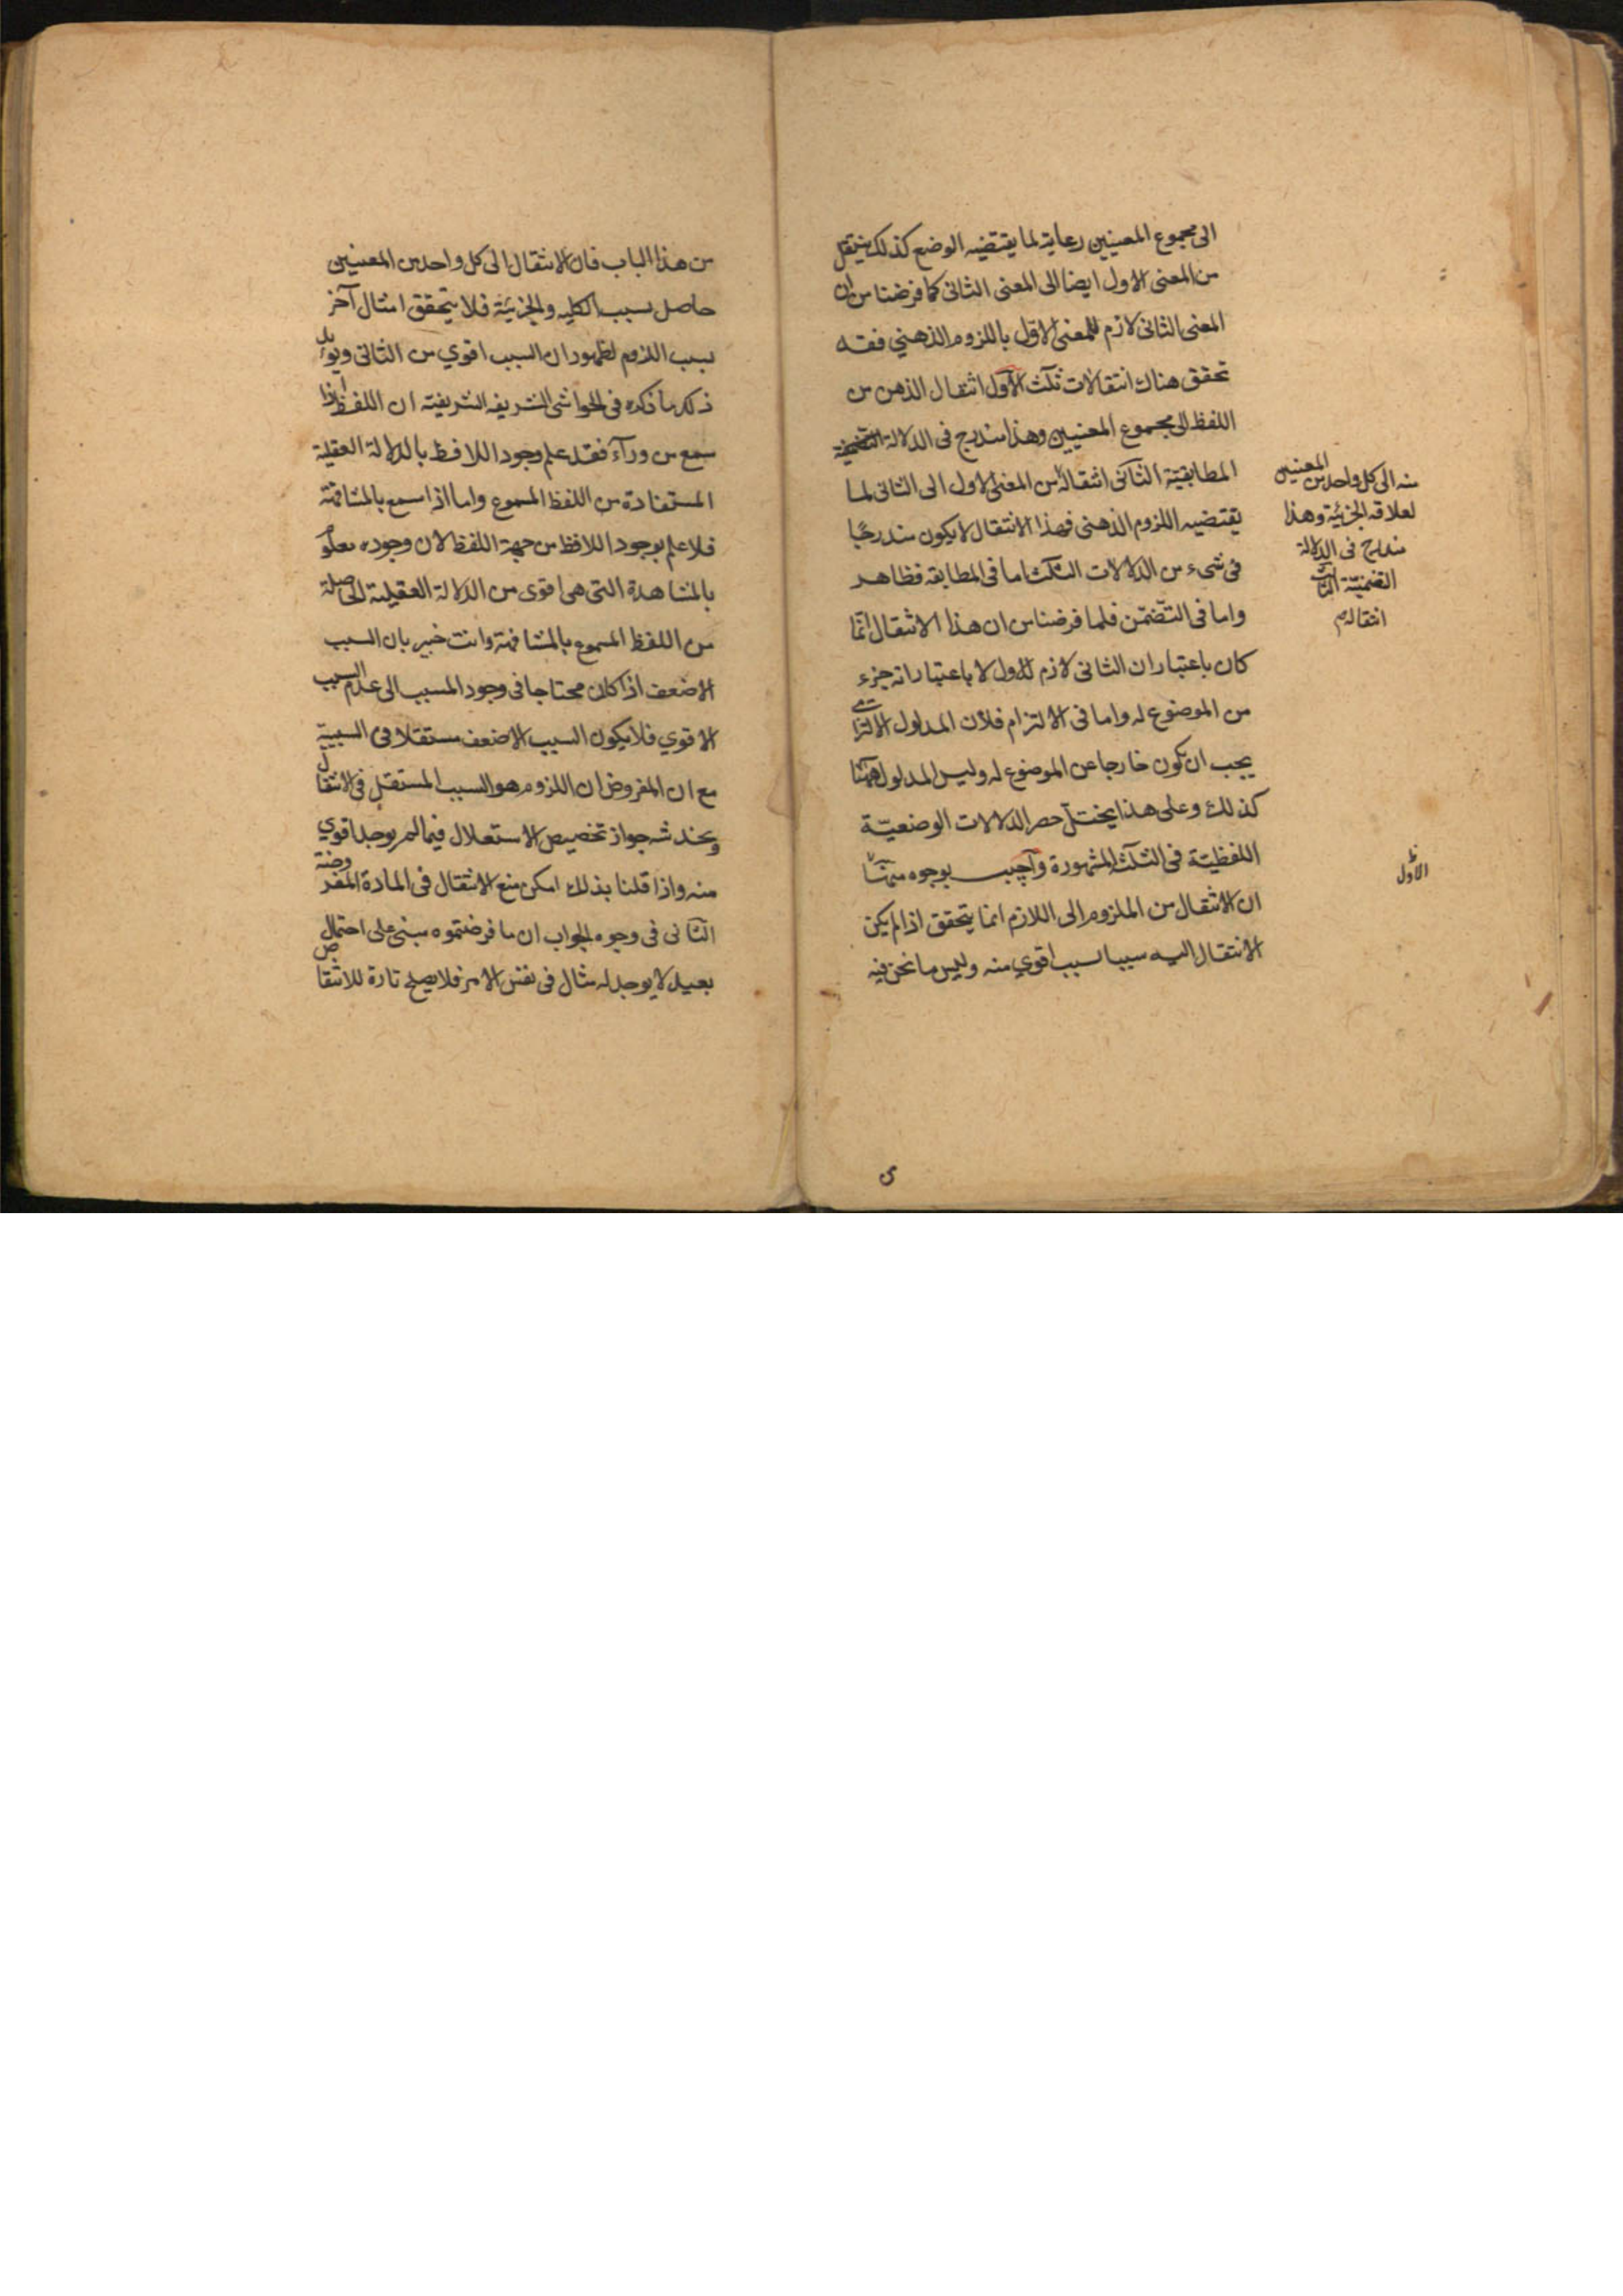 الى مجموع المعنيين رعاية لما يقتضيه الوضع كذلك ينتقل
من المعنى الاول ايضا الى المعنى الثانى كما فرضنا من ان
المعنى الثانى لازم للمعنى الاول باللزوم الذهني فقد
تحقق هناك انتقالات ثلث الاول انتقال الذهن من
اللفظ الى مجموع المعنيين وهذا مندرج فى الدلالة
المطابقية الثانى انتقاله من المعنى الاول الى الثانى لما
يقتضيه اللزوم الذهنى فهذا الانتقال لا يكون مندرجا
فى شىء من الدلالات الثلث اما فى المطابقه فظاهر
واما فى التضمن فلما فرضنا من ان هذا الانتقال انما
كان باعتبار ان الثانى لازم للاول لا باعتبار انه جزء
من الموضوع له واما فى الالتزام فلان المدلول الالتزامى
يجب ان يكون خارجا عن الموضوع له وليس المدلول ههنا
كذلك وعلى هذا يختل حصر الدلالات الوضعية
اللفظية فى الثلث المشهورة وأجيب بوجوه منها
ان الانتقال من الملزوم الى اللازم انما يتحقق اذا لم يكن
الانتقال اليه سببا لسبب اقوي منه وليس ما نحن فيه
منه الى كل واحد من المعنيين
لعلاقه الجزئية وهذا
مندرج فى الدلالة
التضمنية الثالث
انتقاله م
الاول
من هذا الباب فان الانتقال الى كل واحد من المعنيين
حاصل بسبب الكليه والجزئية فلا يتحقق انتقال آخر
بسبب اللزوم لظهور ان السبب اقوي من الثانى ويؤيد
ذلك ما ذكره فى الحواشى الشريفه الشريفية ان اللفظ اذا
سمع من ورآء فقد علم وجود اللافظ بالدلالة العقلية
المستفادة من اللفظ المسموع واما اذا سمع بالمشافهة
فلا علم بوجود اللافظ من جهة اللفظ لان وجوده معلوم
بالمشاهدة التى هى اقوى من الدلالة العقلية الحاصلة
من اللفظ المسموع بالمشافهة وانت خبير بان السبب
الاضعف اذا كان محتاجا فى وجود المسبب الى عدم السبب
الاقوي فلا يكون السبب الاضعف مستقلا فى السببية
مع ان المفروض ان اللزوم هو السبب المستقل فى الانتقال
ويخدشه جواز تخصيص الاستقلال فيما لم يوجد اقوي
منه واذا قلنا بذلك امكن منع الانتقال فى المادة المفروضة
الثانى فى وجوه الجواب ان ما فرضتموه مبنى على احتمال
بعيد لا يوجد له مثال فى نفس الامر فلا يصلح تارة للانتقاض